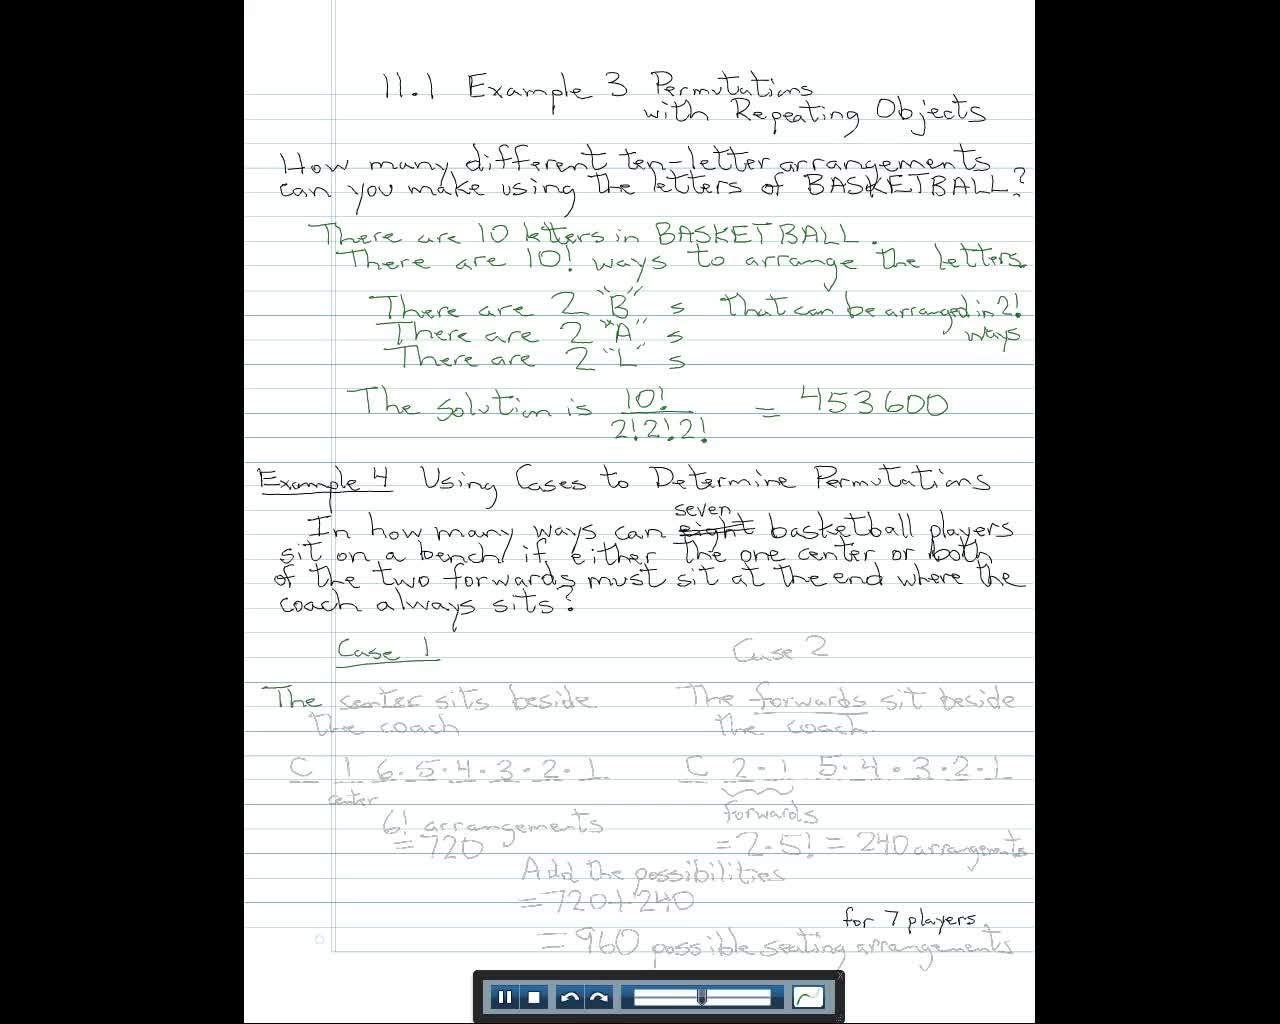 11.1 Example 3 Permutations
with Repeating Objects
How many different ten-letter arrangements
can you make using the letters of BASKETBALL?
There are 10 letters in BASKETBALL.
There are 10! ways to arrange the letters
There are 2 "B" s that can be arranged in 2!
There are 2 "A" s ways
There are 2 "L" s
The solution is 10! / 2!2!2! = 453600
Example 4 Using Cases to Determine Permutations
seven
In how many ways can eight basketball players
sit on a bench if either the one center or both
of the two forwards must sit at the end where the
coach always sits?
Case 1 Case 2
The center sits beside The forwards sit beside
the coach the coach.
C 1 6.5.4.3.2.1 C 2.1 5.4.3.2.1
center forwards
6! arrangements
= 720 = 2.5! = 240 arrangements
Add the possibilities
= 720 + 240
for 7 players.
= 960 possible seating arrangements